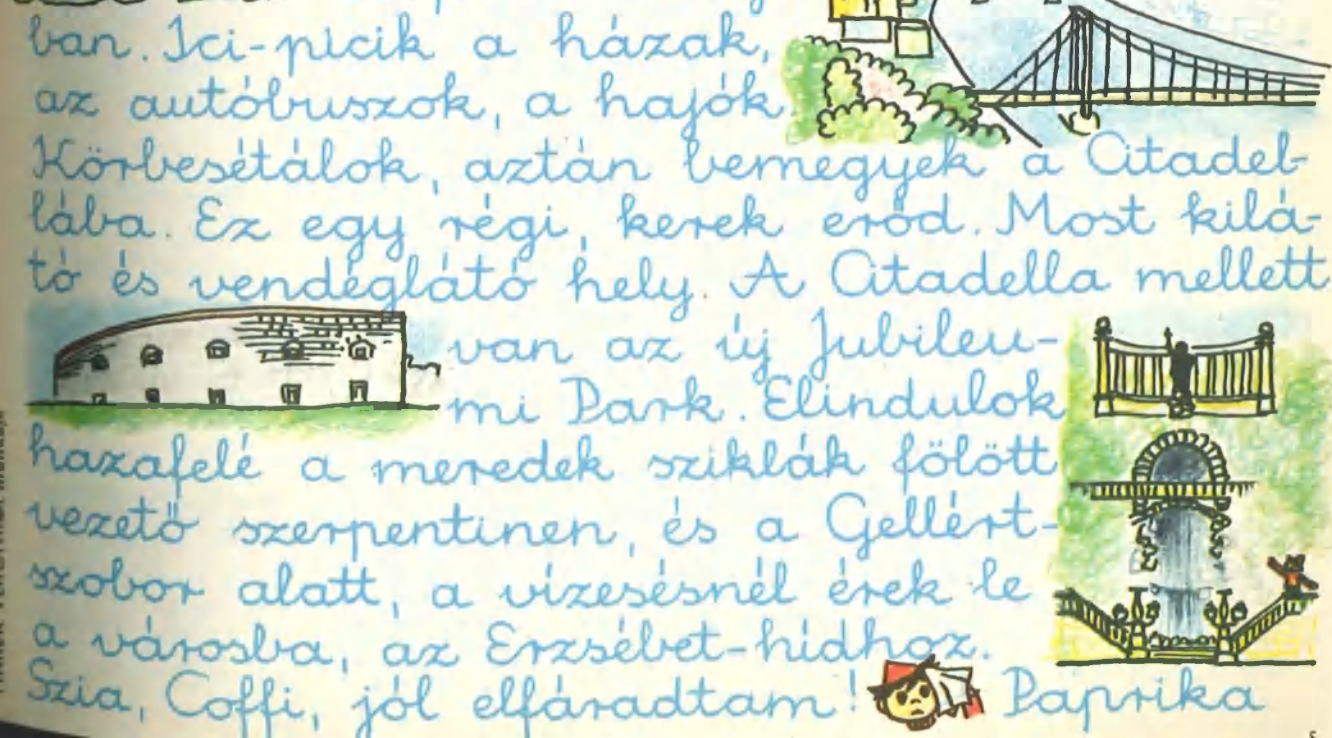 ban. Ici-picik a házak,
az autóbuszok, a hajók
Körbesétálok, aztán bemegyek a Citadel-
lába. Ez egy régi, kerek erőd. Most kilá-
tó és vendéglátó hely. A Citadella mellett
van az új Jubileu-
mi Park. Elindulok
hazafelé a meredek sziklák fölött
vezető szerpentinen, és a Gellért-
szobor alatt, a vízesésnél érek le
a városba, az Erzsébet-hídhoz.
Szia, Coffi, jól elfáradtam! Paprika
5